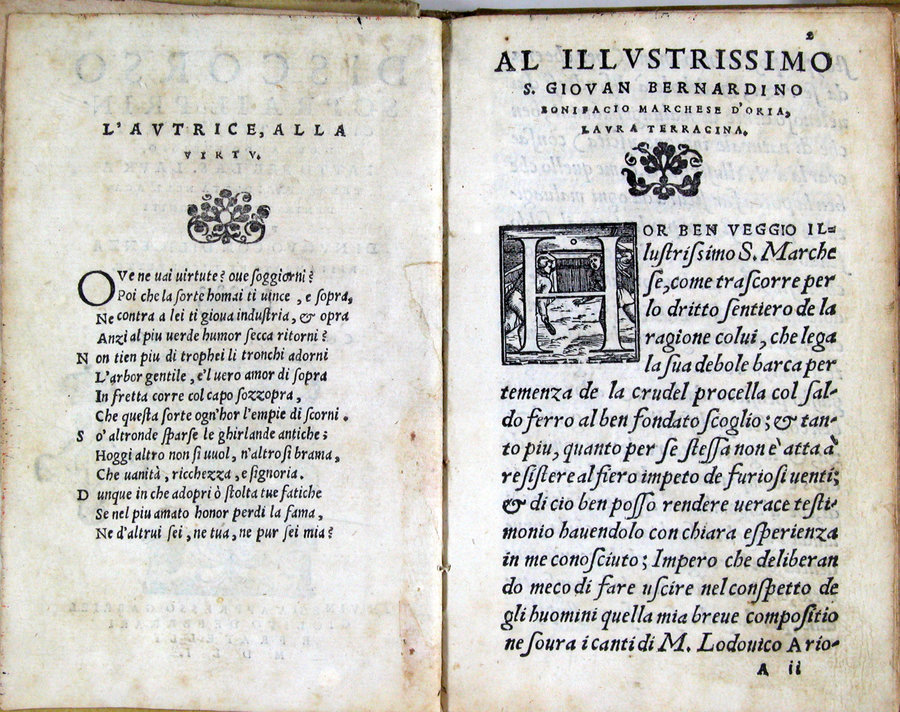 L'AVTRICE, ALLA
VIRTV.
OVe ne uai uirtute? oue soggiorni?
Poi che la sorte homai ti uince, e sopra,
Ne contra a lei ti gioua industria, & opra
Anzi al piu uerde humor secca ritorni?
Non tien piu di trophei li tronchi adorni
L'arbor gentile, e'l uero amor di sopra
In fretta corre col capo sozzopra,
Che questa sorte ogn'hor l'empie di scorni.
So' altronde sparse le ghirlande antiche;
Hoggi altro non si uuol, n'altro si brama,
Che uanità, ricchezza, e signoria.
Dunque in che adopri ò stolta tue fatiche
Se nel piu amato honor perdi la fama,
Ne d'altrui sei, ne tua, ne pur sei mia?
2
AL ILLVSTRISSIMO
S. GIOVAN BERNARDINO
BONIFACIO MARCHESE D'ORIA,
LAVRA TERRACINA.
HOR BEN VEGGIO IL=
lustrissimo S. Marche
se, come trascorre per
lo dritto sentiero de la
ragione colui, che lega
la sua debole barca per
temenza de la crudel procella col sal-
do ferro al ben fondato scoglio; & tan-
to piu, quanto per se stessa non è atta à
resistere al fiero impeto de furiosi uenti;
& di cio ben posso rendere uerace testi-
monio hauendolo con chiara esperienza
in me conosciuto; Impero che deliberan
do meco di fare uscire nel conspetto de
gli huomini quella mia breue compositio
ne soura i canti di M. Lodouico Ario-
A ii